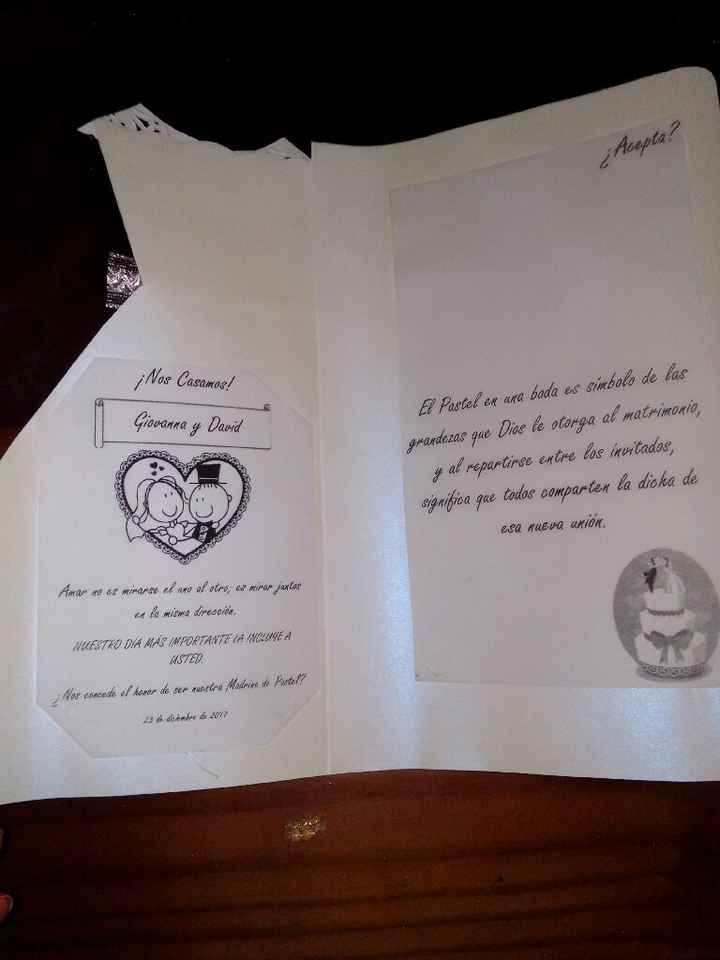 ¡Nos Casamos!
Giovanna y David
Amar no es mirarse el uno al otro; es mirar juntos
en la misma dirección.
NUESTRO DÍA MÁS IMPORTANTE LA INCLUYE A
USTED.
¿Nos concede el honor de ser nuestra Madrina de Pastel?
23 de diciembre de 2017
¿Acepta?
El Pastel en una boda es símbolo de las
grandezas que Dios le otorga al matrimonio,
y al repartirse entre los invitados,
significa que todos comparten la dicha de
esa nueva unión.